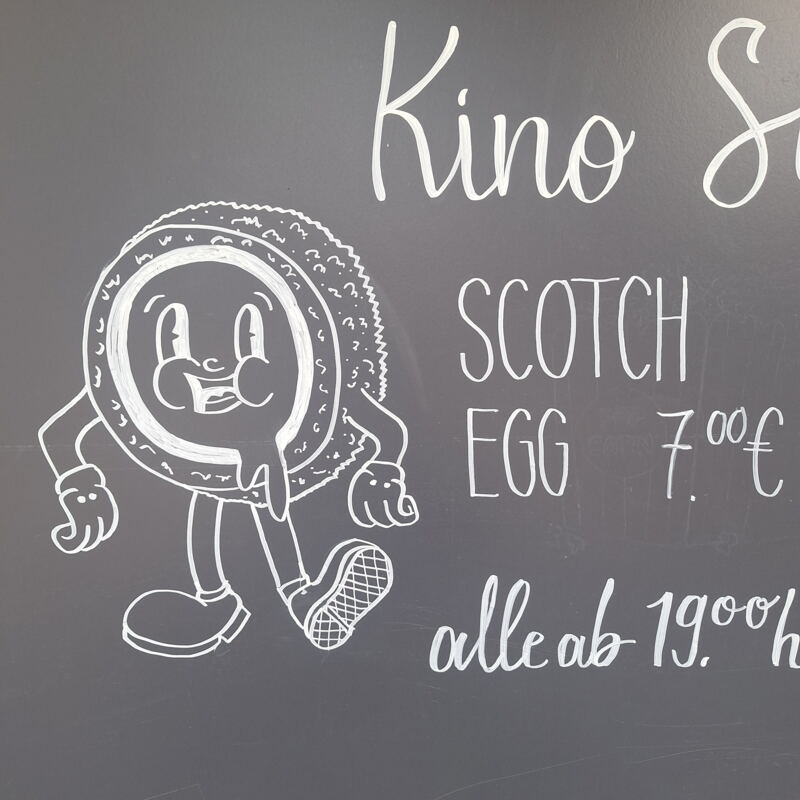 Kino
SCOTCH
EGG 7.00€
alle ab 19.00h